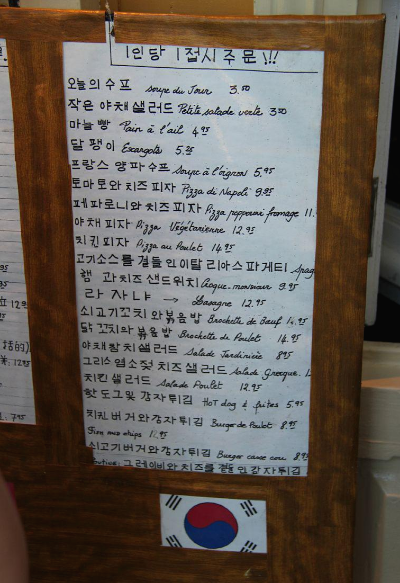 1인당 1접시 주문!!!
오늘의 수프 soupe du Jour 3.50
작은 야채 샐러드 Petite salade verte 3.50
마늘 빵 Pain à l'ail 4.95
달팽이 Escargots 5.25
프랑스 양파 수프 Soupe à l'oignon 5.95
토마토와 치즈 피자 Pizza di Napoli 9.95
페파로니와 치즈 피자 Pizza pepperoni fromage 11.
야채 피자 Pizza Végétarienne 12.95
치킨 피자 Pizza au Poulet 14.95
고기소스를 곁들인 이탈리아 스파게티 Spag
햄 과 치즈 샌드위치 Croque-monsieur 9.95
라 자냐 → Lasagne 12.95
쇠고기꼬치와 볶음밥 Brochette de Bœuf 14.95
닭 꼬치와 볶음밥 Brochette de Poulet 14.95
야채참치샐러드 Salade Jardinière 8.95
그리스 염소젖 치즈 샐러드 Salade Grecque
치킨 샐러드 Salade Poulet 12.95
핫도그 및 감자튀김 HOT dog & frites 5.95
치킨버거와 감자튀김 Burger de Poulet 8.95
Fish aux chips 11.95
쇠고기버거와 감자튀김 Burger casse cou 8.95
Poutine: 그레이비와 치즈를 곁들인 감자튀김